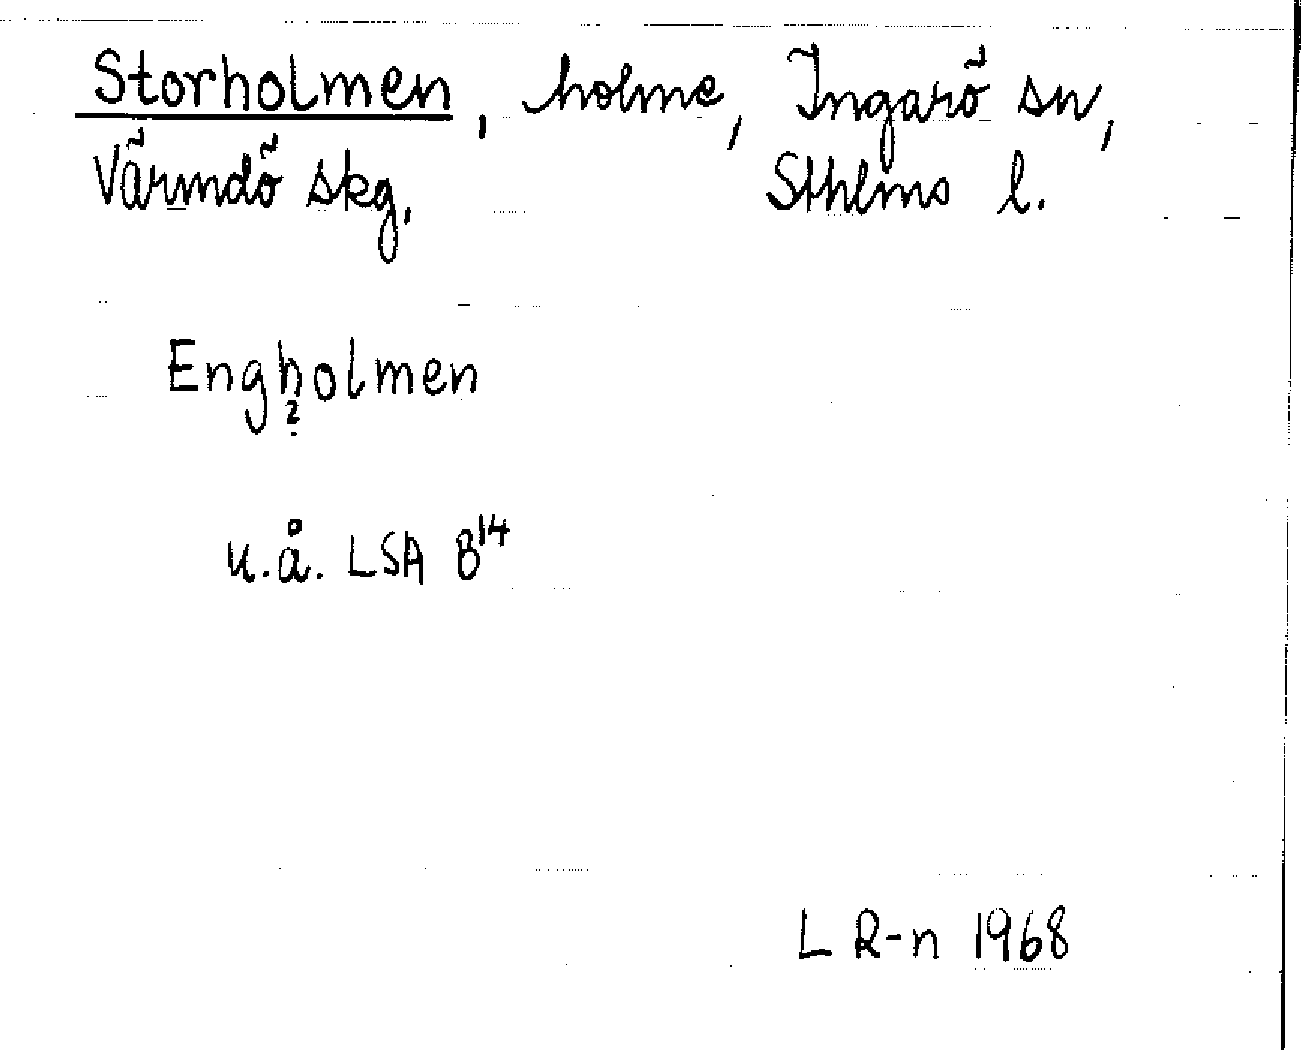 Storholmen, holme, Ingarö sn,
Värmdö skg. Sthlms l.
Engholmen
?
u.å. LSA B¹⁴
L R-n 1968